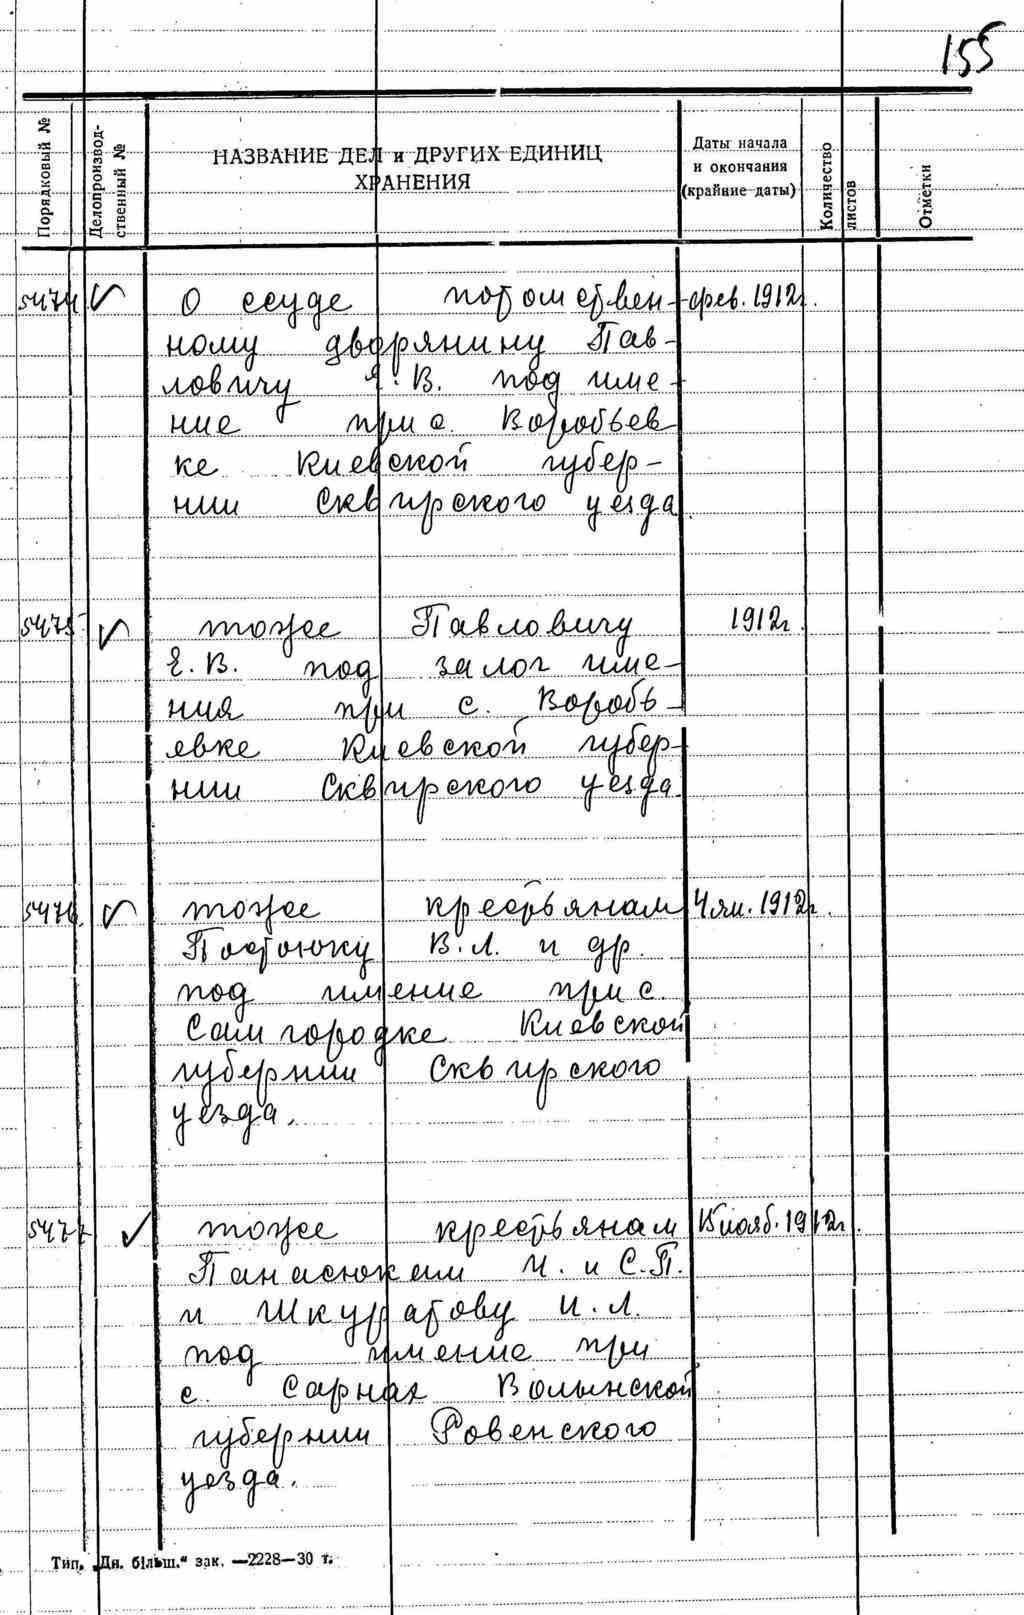 155
Порядковый №
Делопроизвод-
ственный №
НАЗВАНИЕ ДЕЛ и ДРУГИХ ЕДИНИЦ
ХРАНЕНИЯ
Даты начала
и окончания
(крайние даты)
Количество
листов
Отметки
5474 О ссуде потомствен- фев. 1912г.
ному дворянину Пав-
ловичу В. под име-
ние при с. Воробьев
ке Киевской губер-
нии Сквирского уезда
5475 тоже Павловичу 1912г.
Е. В. под залог име-
ния при с. Воробь-
евке Киевской губер-
нии Сквирского уезда.
5476 тоже крестьянам 4 ян. 1912г.
Постоюку В. Л. и др.
под имение при с.
Самгородке Киевской
губернии Сквирского
уезда.
5477 тоже крестьянам 15 нояб. 1912г.
Панасюкам И. и С. П.
и Шкуратову И. Л.
под имение при
с. Сарнах Волынской
губернии Ровенского
уезда.
Тип. „Дн. більш.“ зак. —2228—30 т.